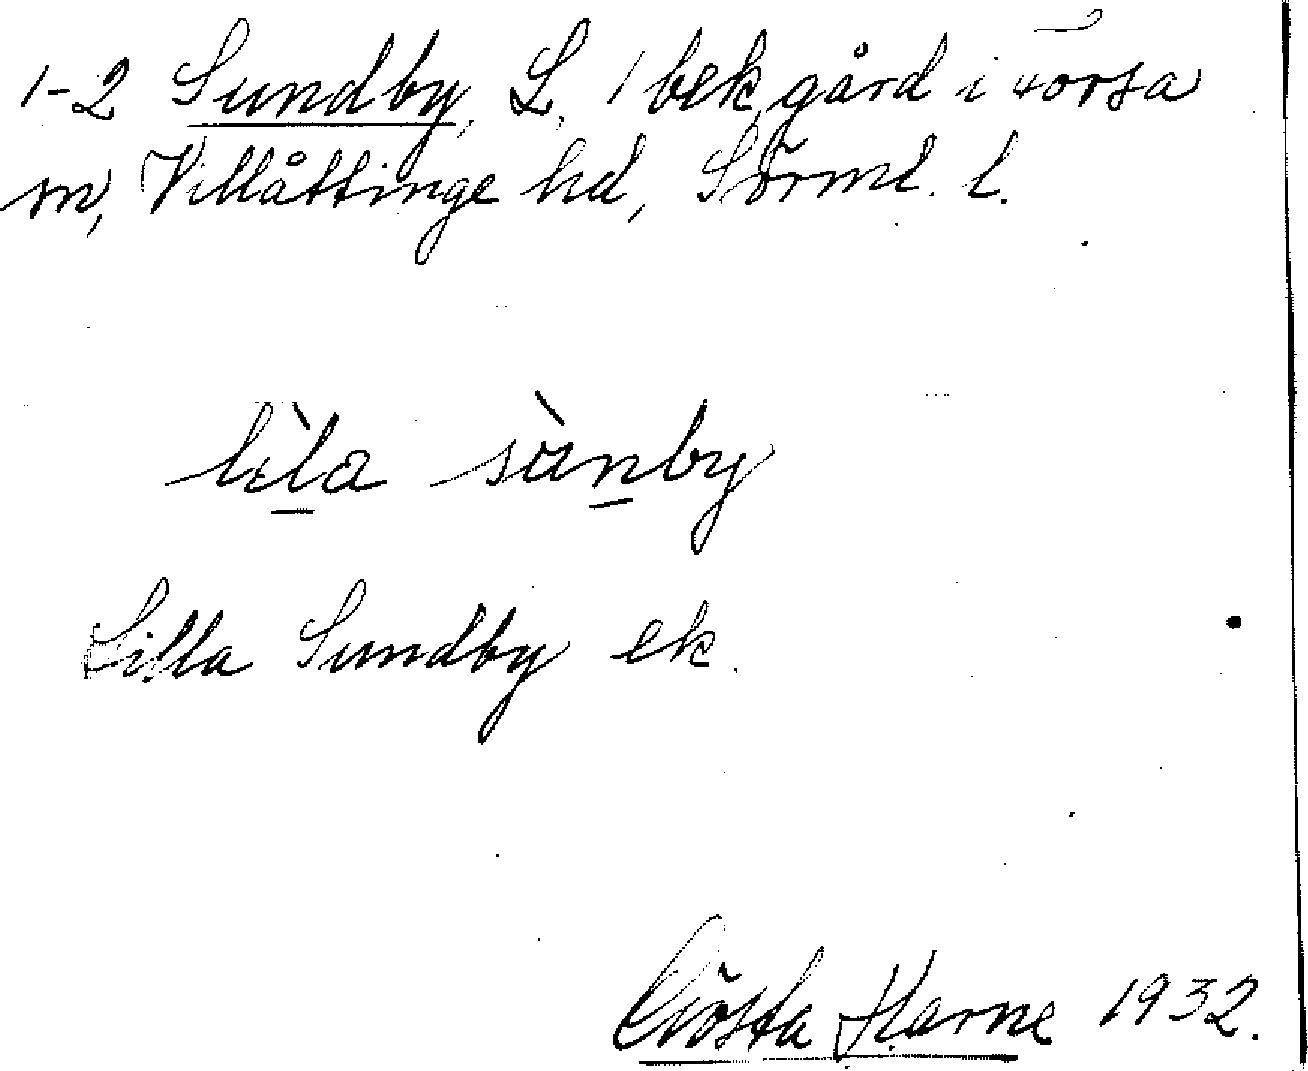 1-2 Sundby, L. 1 bek. gård i Torsa
sn, Villåttinge hd, Sörml. l.
lìla sùnby
Lilla Sundby ek.
Gösta Harne 1932.